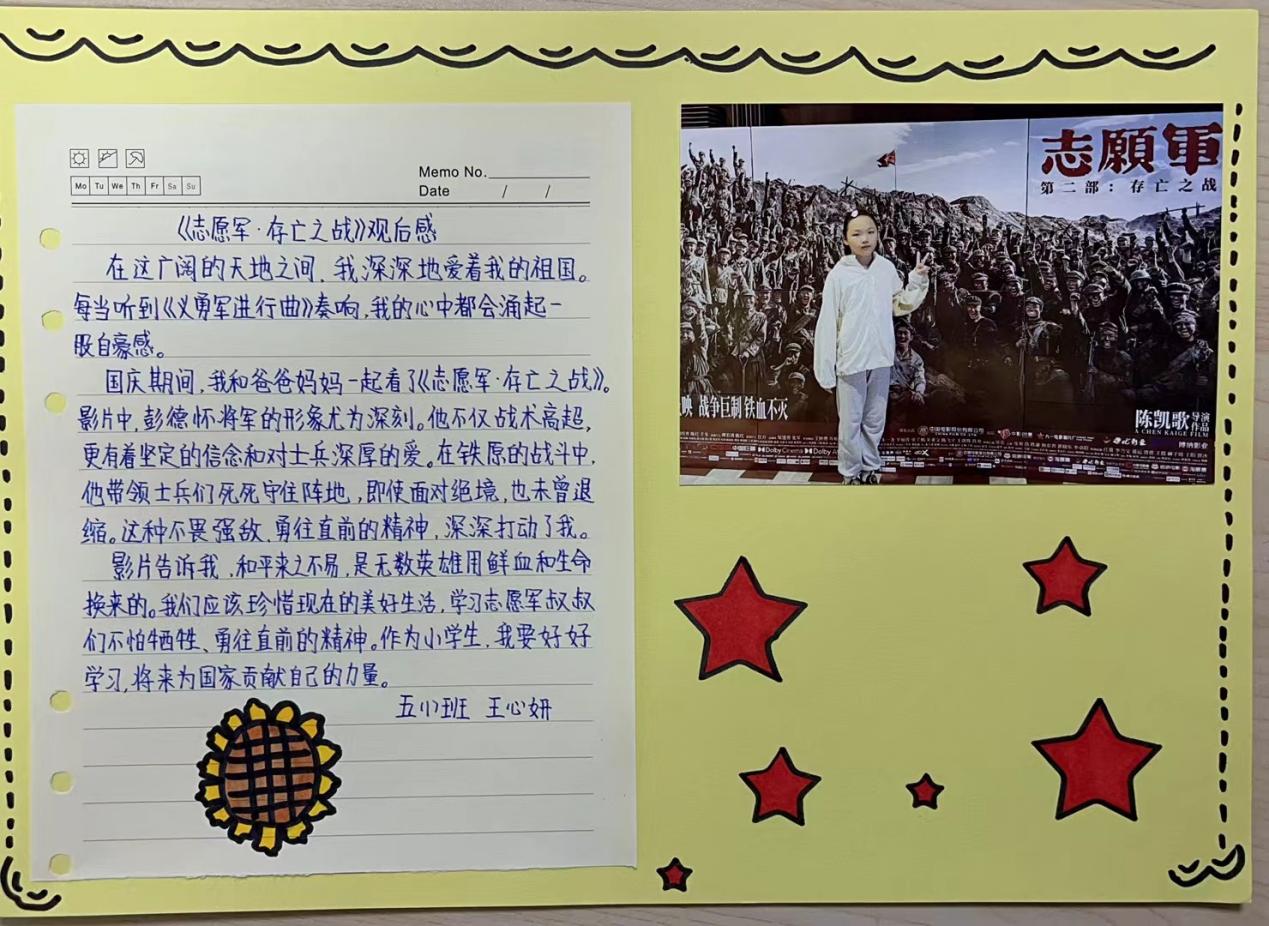 Mo Tu We Th Fr Sa Su
Memo No.
Date / /
《志愿军·存亡之战》观后感
在这广阔的天地之间,我深深地爱着我的祖国。
每当听到《义勇军进行曲》奏响,我的心中都会涌起一
股自豪感。
国庆期间,我和爸爸妈妈一起看了《志愿军·存亡之战》。
影片中,彭德怀将军的形象尤为深刻。他不仅战术高超,
更有着坚定的信念和对士兵深厚的爱。在铁原的战斗中,
他带领士兵们死死守住阵地,即使面对绝境,也未曾退
缩。这种不畏强敌、勇往直前的精神,深深打动了我。
影片告诉我,和平来之不易,是无数英雄用鲜血和生命
换来的。我们应该珍惜现在的美好生活,学习志愿军叔叔
们不怕牺牲、勇往直前的精神。作为小学生,我要好好
学习,将来为国家贡献自己的力量。
王心妍
志願軍
第二部:存亡之战
映 战争巨制 铁血不灭
陈凯歌 导演作品
A CHEN KAIGE FILM
Dolby Cinema